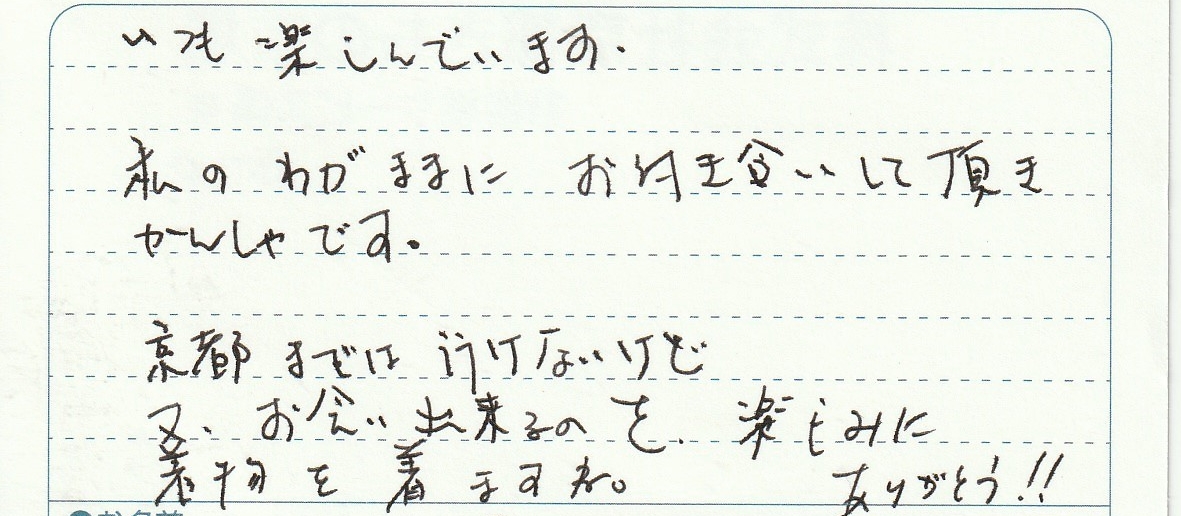 いつも楽しんでいます.
私のわがままに お付き合いして頂き
かんしゃです。
京都までは行けないけど
又、お会い出来るのを、楽しみに
着物を着ますね。
ありがとう!!
お名前